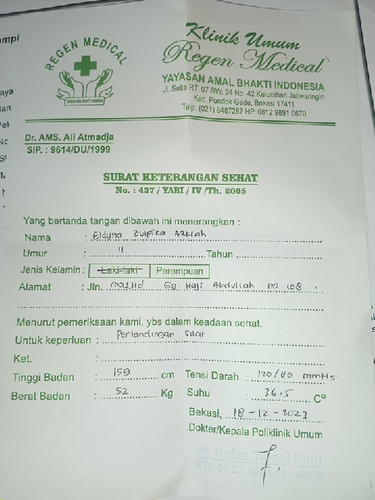 REGEN MEDICAL
Klinik Umum
Regen Medical
YAYASAN AMAL BHAKTI INDONESIA
Jl. Setia RT 07 RW. 04 No. 42 Kelurahan Jatiwaringin
Kec. Pondok Gede, Bekasi 17411
Telp. (021) 8487287 HP. 0812 9891 0670
Dr. AMS. Ali Atmadja
SIP. : 9614/DU/1999
SURAT KETERANGAN SEHAT
No. : 437 / YARI / IV /Th. 2005
Yang bertanda tangan dibawah ini menerangkan :
Nama : Zulfira
Umur : 11 Tahun
Jenis Kelamin : Laki-laki Perempuan
Alamat : Jln. masjid Haji Abdullah no 108
Menurut pemeriksaan kami, ybs dalam keadaan sehat.
Untuk keperluan : Pertandingan Silat
Ket. :
Tinggi Badan : 159 cm Tensi Darah : 120/80 mmHg
Berat Badan : 52 Kg Suhu : 36.5 C°
Bekasi, 18-12-2023
Dokter/Kepala Poliklinik Umum